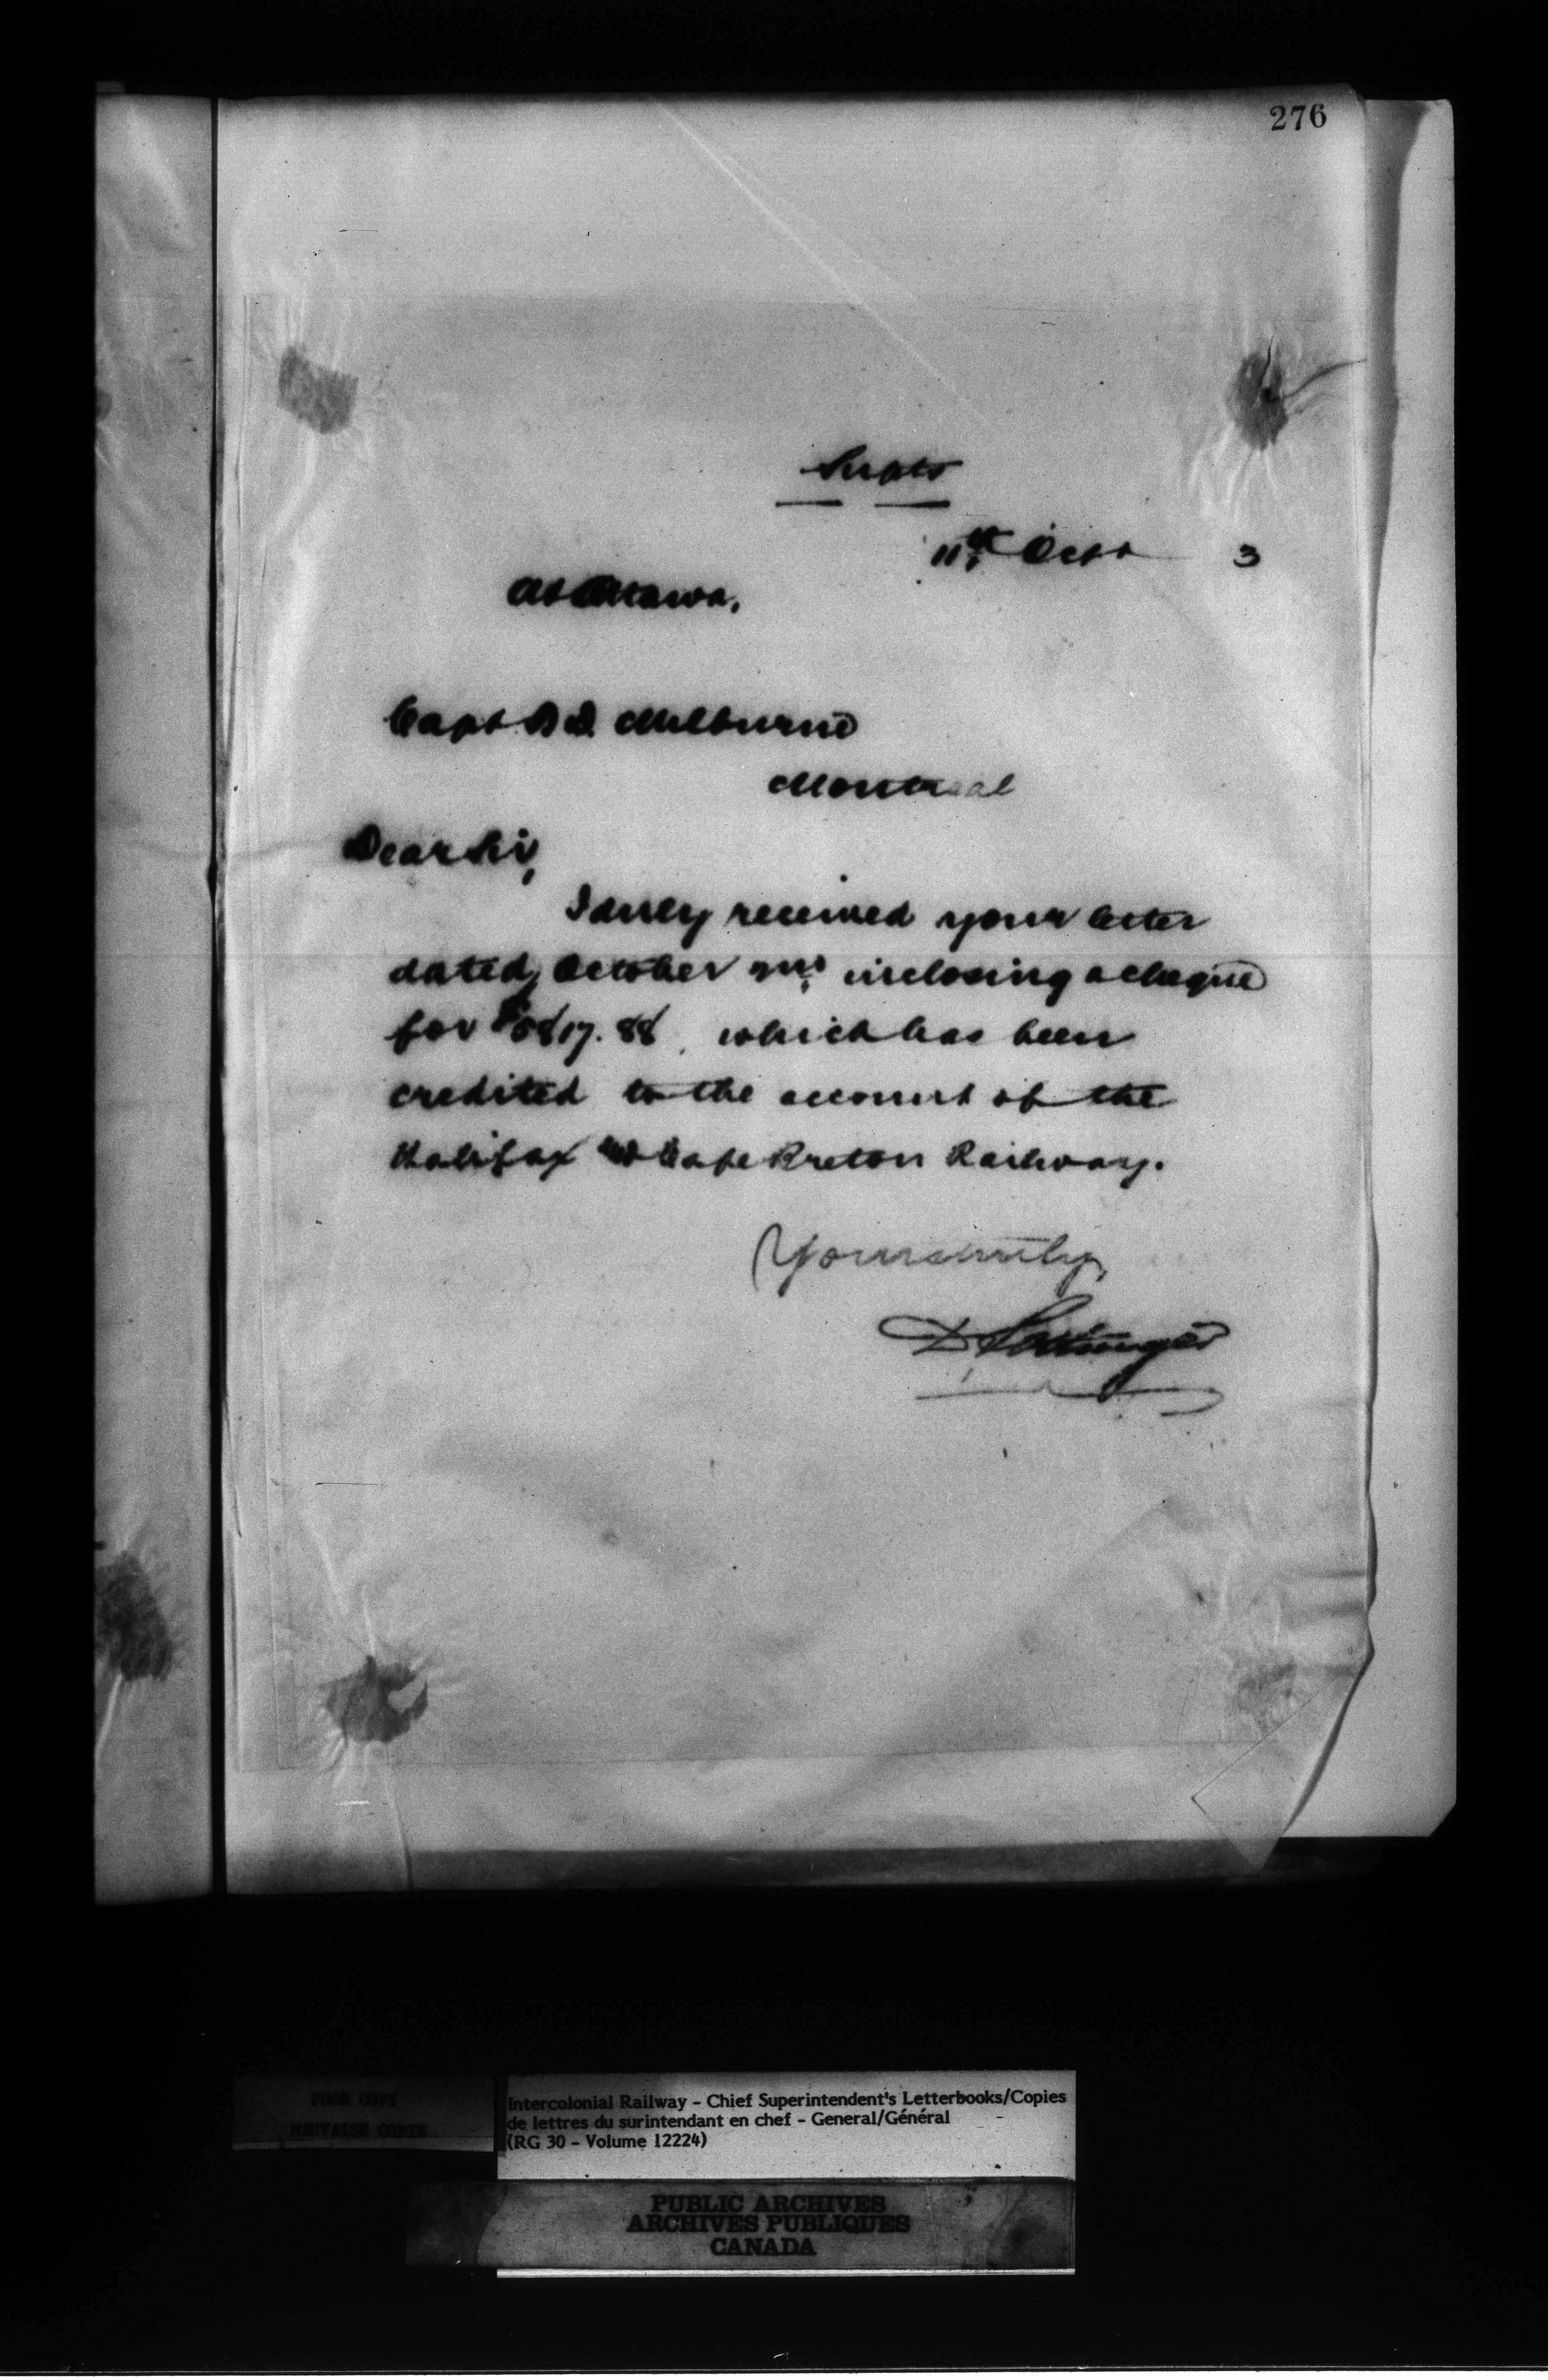 276
Supts
11th Oct 3
At Ottawa,
Capt D. Milburne
Montreal
Dear Sir,
I duly received your letter
dated October inclosing a cheque
for which has been
credited to the account of the
Halifax & Cape Breton Railway.
Yours truly,
D Pottinger
POOR COPY
MAUVAISE COPIE
Intercolonial Railway - Chief Superintendent's Letterbooks/Copies
de lettres du surintendant en chef - General/Général
(RG 30 - Volume 12224)
PUBLIC ARCHIVES
ARCHIVES PUBLIQUES
CANADA